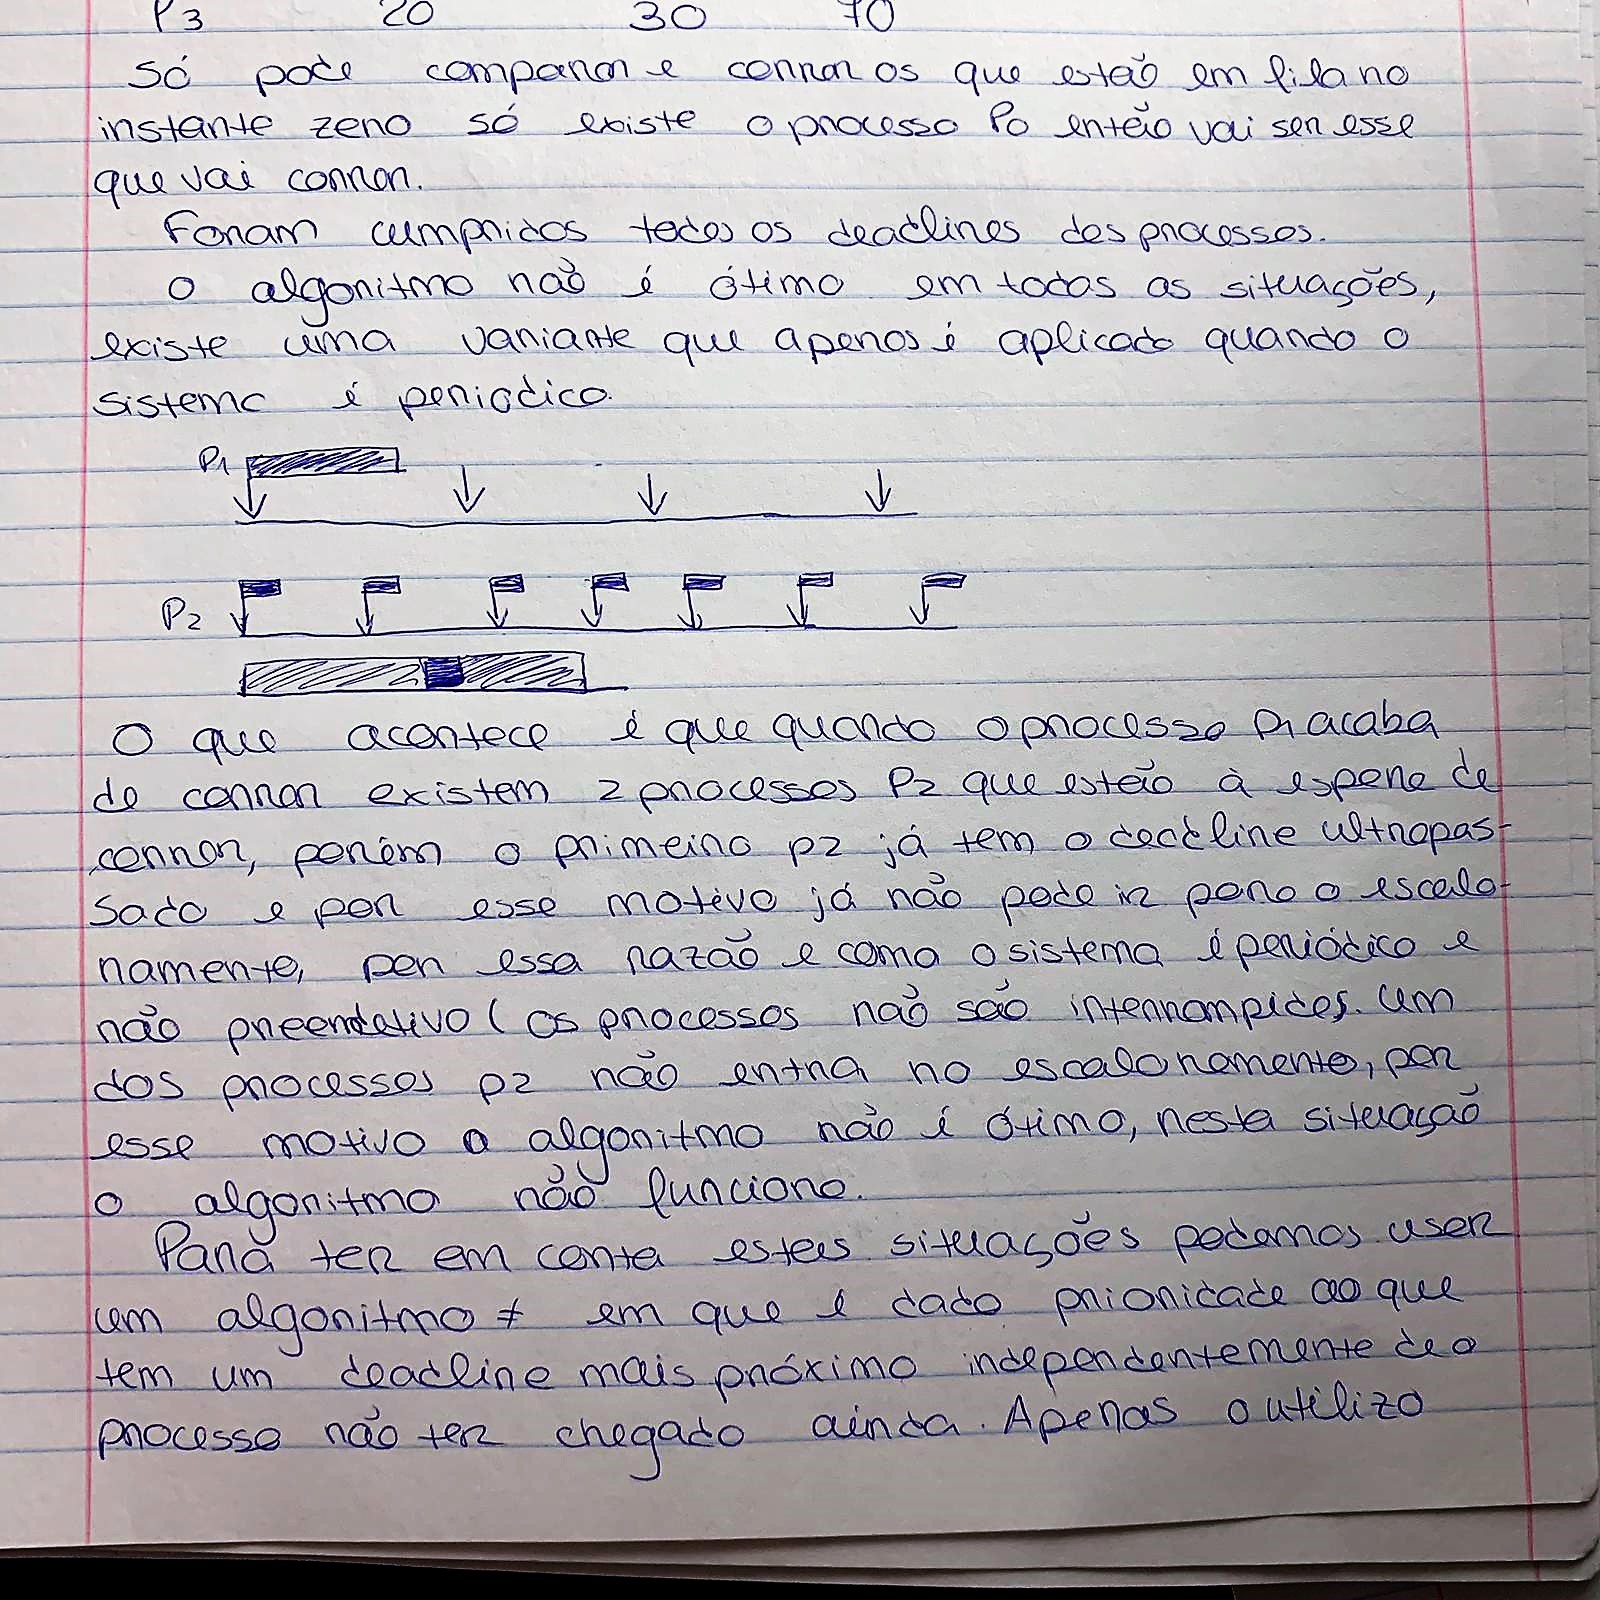 P3 20 30 70
Só pode comparar e correr os que estão em fila no
instante zero só existe o processo P0 então vai ser esse
que vai correr.
Foram cumpridos todos os deadlines dos processos.
O algoritmo não é ótimo em todas as situações,
existe uma variante que apenas é aplicado quando o
sistema é periódico.
P1
P2
O que acontece é que quando o processo P1 acaba
de correr existem 2 processos P2 que estão à espera de
correr, porém o primeiro p2 já tem o deadline ultrapas-
sado e por esse motivo já não pode ir para o escalo-
namento, por essa razão e como o sistema é periódico e
não preendetivo (os processos não são interrompidos. Um
dos processos p2 não entra no escalonamento, por
esse motivo o algoritmo não é ótimo, nesta situação
o algoritmo não funciona.
Para ter em conta estas situações podemos usar
um algoritmo ≠ em que é dado prioridade ao que
tem um deadline mais próximo independentemente de o
processo não ter chegado ainda. Apenas o utilizo